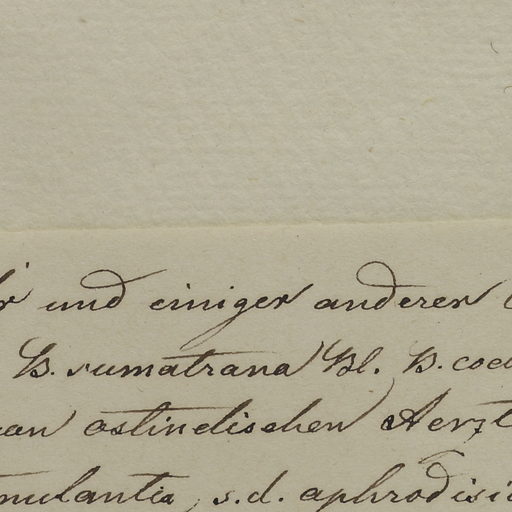 und einiger anderer
B. sumatrana Bl. B. coe
an ostindischen Aerzt
mulantia, s.d. aphrodisi